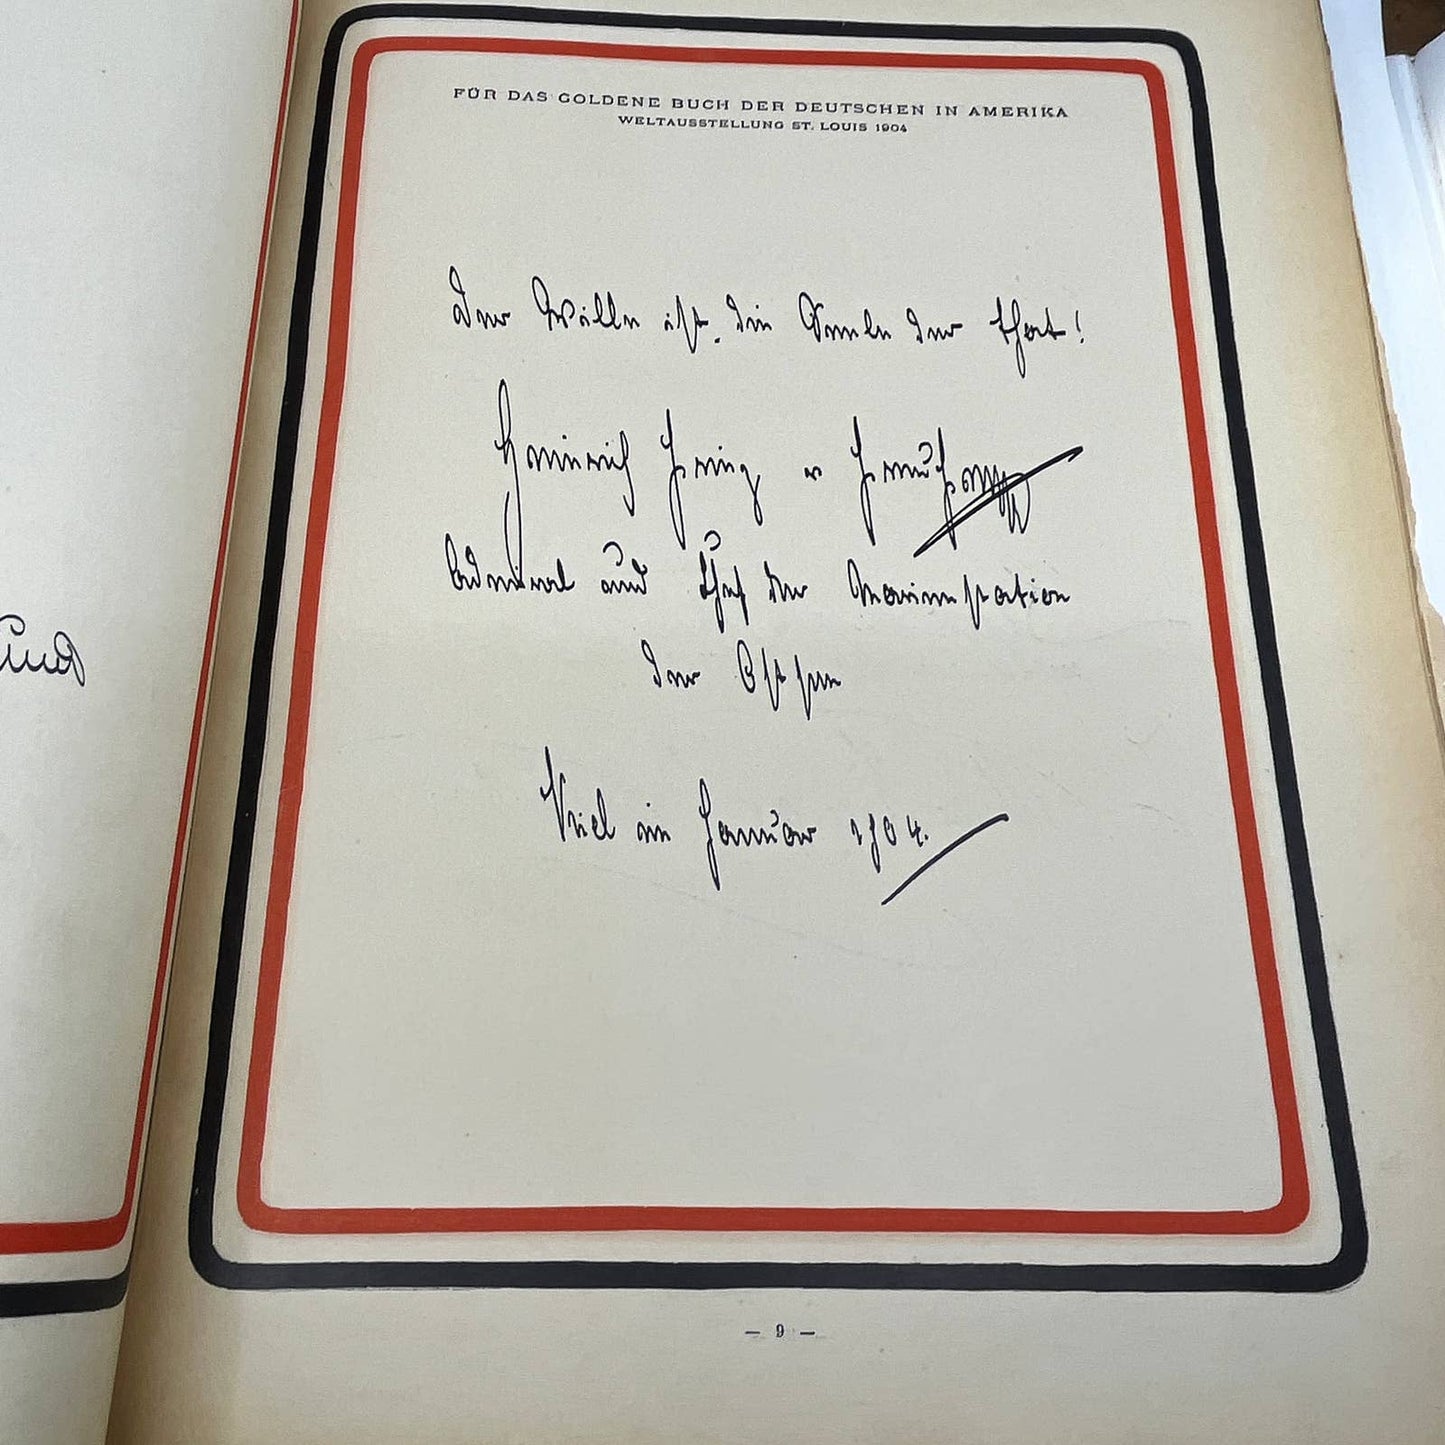 FÜR DAS GOLDENE BUCH DER DEUTSCHEN IN AMERIKA
WELTAUSSTELLUNG ST. LOUIS 1904
Der Wille ist die Seele der That!
Heinrich Prinz v Preußen
Admiral und Chef der Marinestation
der Ostsee
Kiel im Januar 1904.
— 9 —